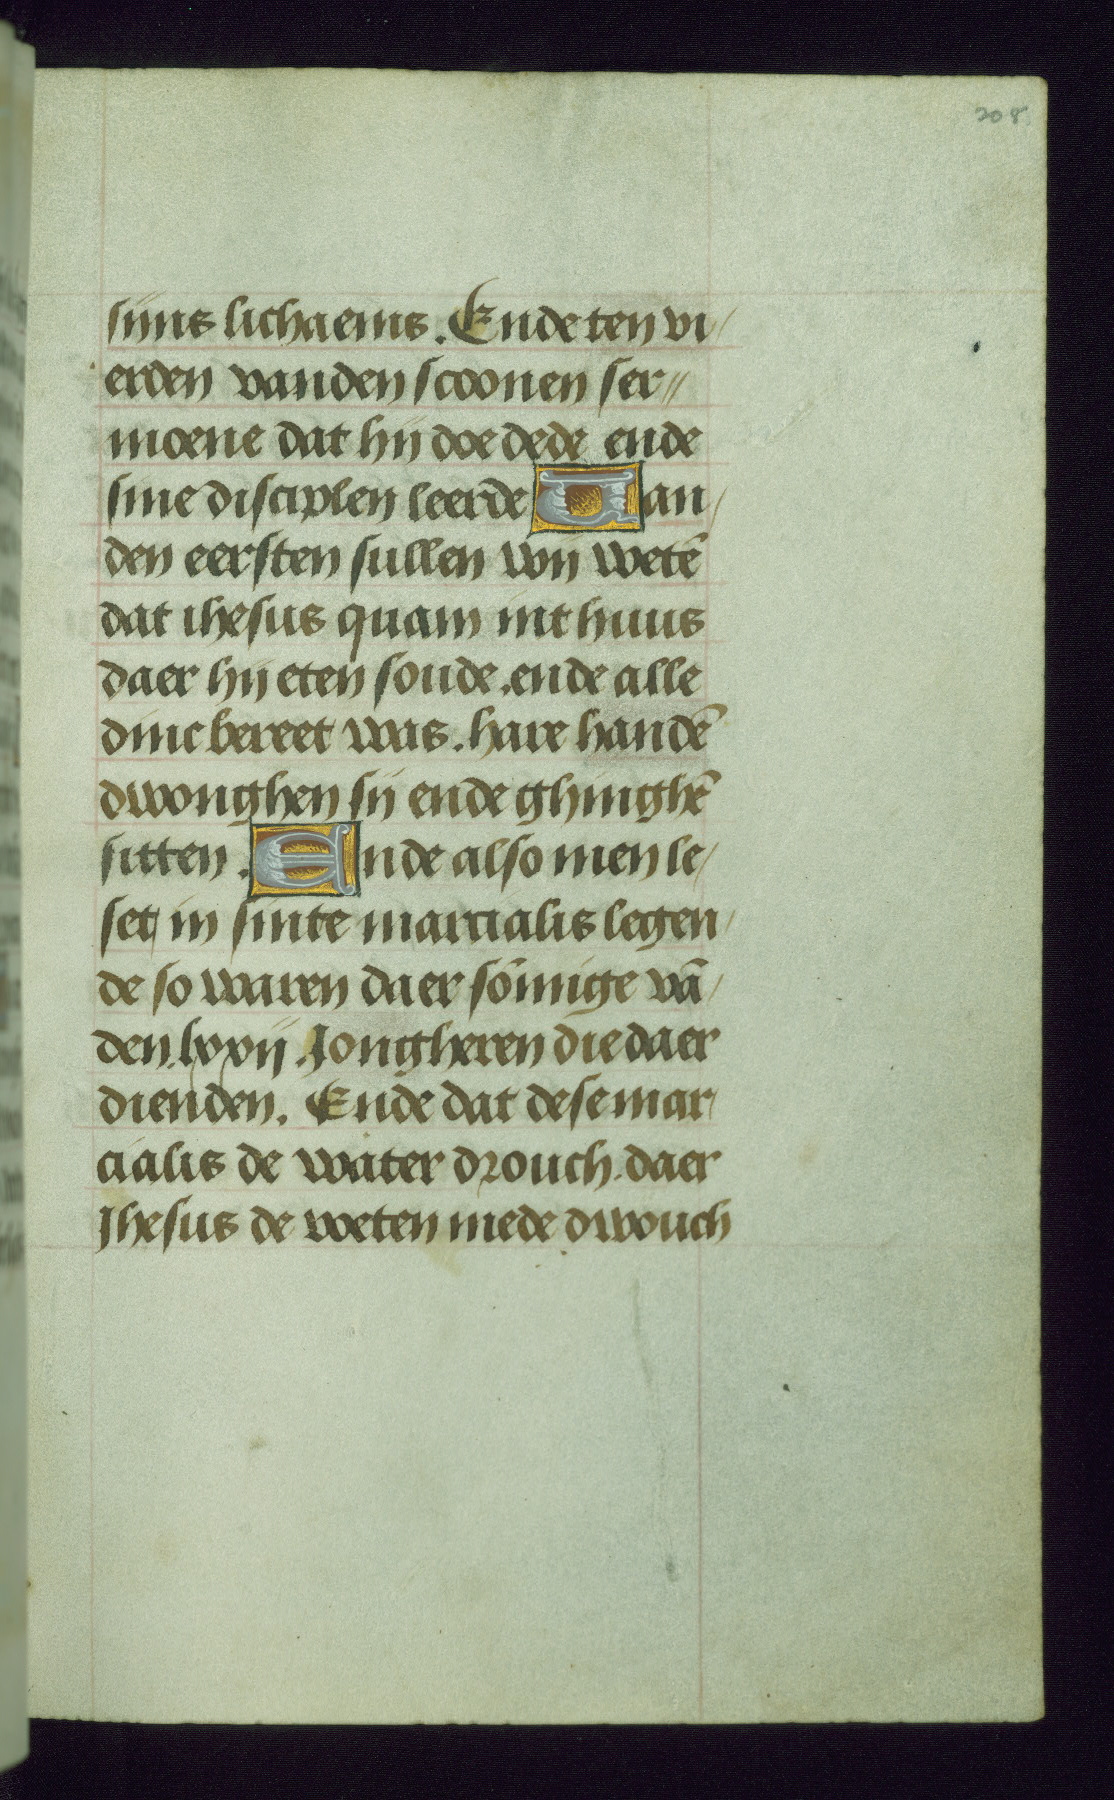 208
sijns lichaems. Ende ten vi/
erden vanden scoonen ser//
moene dat hij doe dede ende
sine disciplen leerde Van/
den eersten sullen wij wetē
dat ihesus quam int huus
daer hij eten soude. ende alle
dinc bereet was. hare handē
dwonghen sij ende ghinghē
sitten. Ende also men le/
set in sinte marcialis legen/
de so waren daer sōmige vā/
den. lxxij. Jongheren die daer
dienden. Ende dat dese mar/
cialis de water drouch. daer
Jhesus de veten mede dwouch